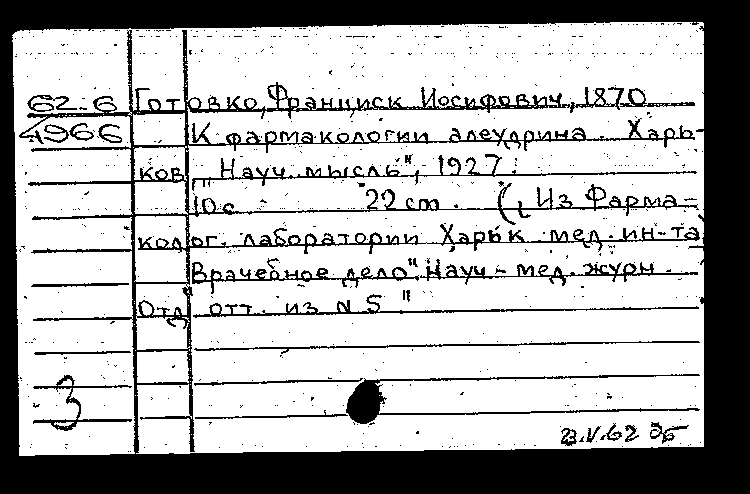 62-6 Готовко, Франциск Иосифович, 1870
4966 К фармакологии алеудрина. Харь-
ков, "Науч. мысль", 1927.
10 с. 22 cm. (Из Фарма-
колог. лаборатории Харьк. мед. ин-та
"Врачебное дело". Науч-мед. журн.
Отд. отт. из N 5"
3
3.V.62